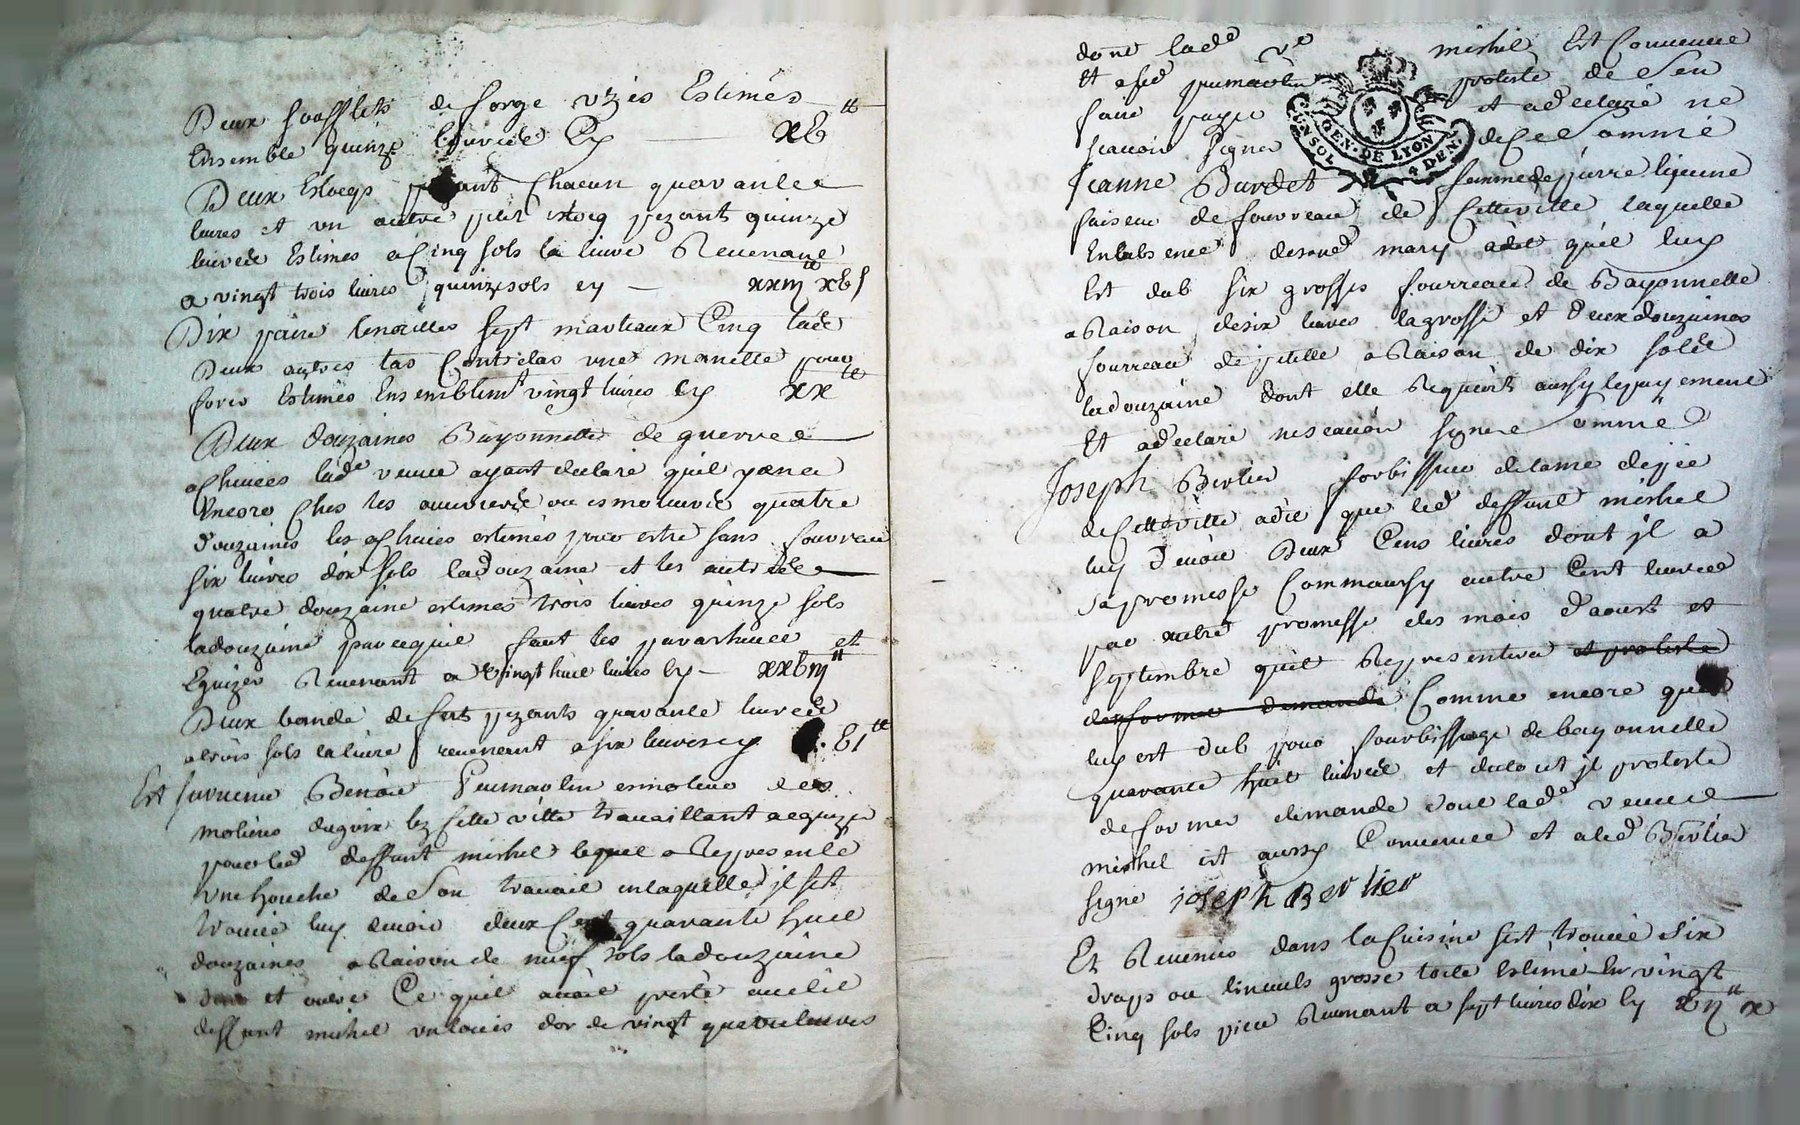 Deux soufflets de forge uzés Estimés
Ensemble quinze livres Cy xb tt
Deux Estocqs chacun quarante
livres et un autre petit estocq pezant quinze
livres Estimés a Cinq sols la livre Revenant
a vingt trois livres quinze sols cy — xxiij tt xb s
Dix paire tenailles sept marteaux Cinq
Deux autres tas une manille pour
forer Estimés Ensemblemt vingt livres Cy xx tt
Deux douzaines Bayonnettes de guerre
achevées lade veuve ayant declaré quil y en a
Encore ches les ouvriers ou esmouleurs quatre
douzaines les achevés estimés pour estre sans fourreau
six livres dix sols la douzaine et les autres
quatre douzaine estimés trois livres quinze sols
la douzaine parcequil faut les parachever et
Eguizer Revenant a vingt huit livres Cy — xxbiij tt
Deux bande de fert pezants quarante livres
a trois sols la livre revenant a six livres cy bj tt
Est survenu Benoit esmoleur des
molieres lez cette ville travaillant a eguizer
pour led deffunt michel lequel a Represente
une de Son travail en laquelle il sest
trouvé luy devoir deux Cent quarante huit
douzaines a Raison de neuf sols la douzaine
et outre Ce quil avoit presté audit
deffunt michel un louis dor de vingt quatre livres
dont lade ve michel Est Convenue
Et proteste de Sen
faire payer et a declaré ne
scavoir signer de Ce Sommé
GEN. DE LYON
Jeanne Burdet femme de pierre
faiseur de fourreau de Cette ville laquelle
En labsence de sond mary a dit quil luy
Est dub six grosses fourreau de Bayonnette
a Raison de six livres la grosse et deux douzaines
fourreau de a Raison de dix sols
la douzaine dont elle Requiert aussy le payement
Et a declaré ne scavoir signer Sommé
Joseph Berlier forbisseur
de Cette ville a dit que led deffunt michel
luy devoit Deux Cens livres dont il a
sa promesse Comm aussy autre Cent livres
par autre promesse des mois daoust et
septembre quil Representera et proteste
de former demande Comme encore quil
luy est dub pour fourbissage de bayonnette
quarante huit livres et du tout il proteste
de former demande dont lade veuve
michel est aussy Convenue et a led Berlier
signé joseph Berlier
Et Revenus dans la Cuisine sest trouvé six
draps ou linceuls grosse toile Estimé En vingt
Cinq sols piece Revenant a sept livres dix Cy bij tt x